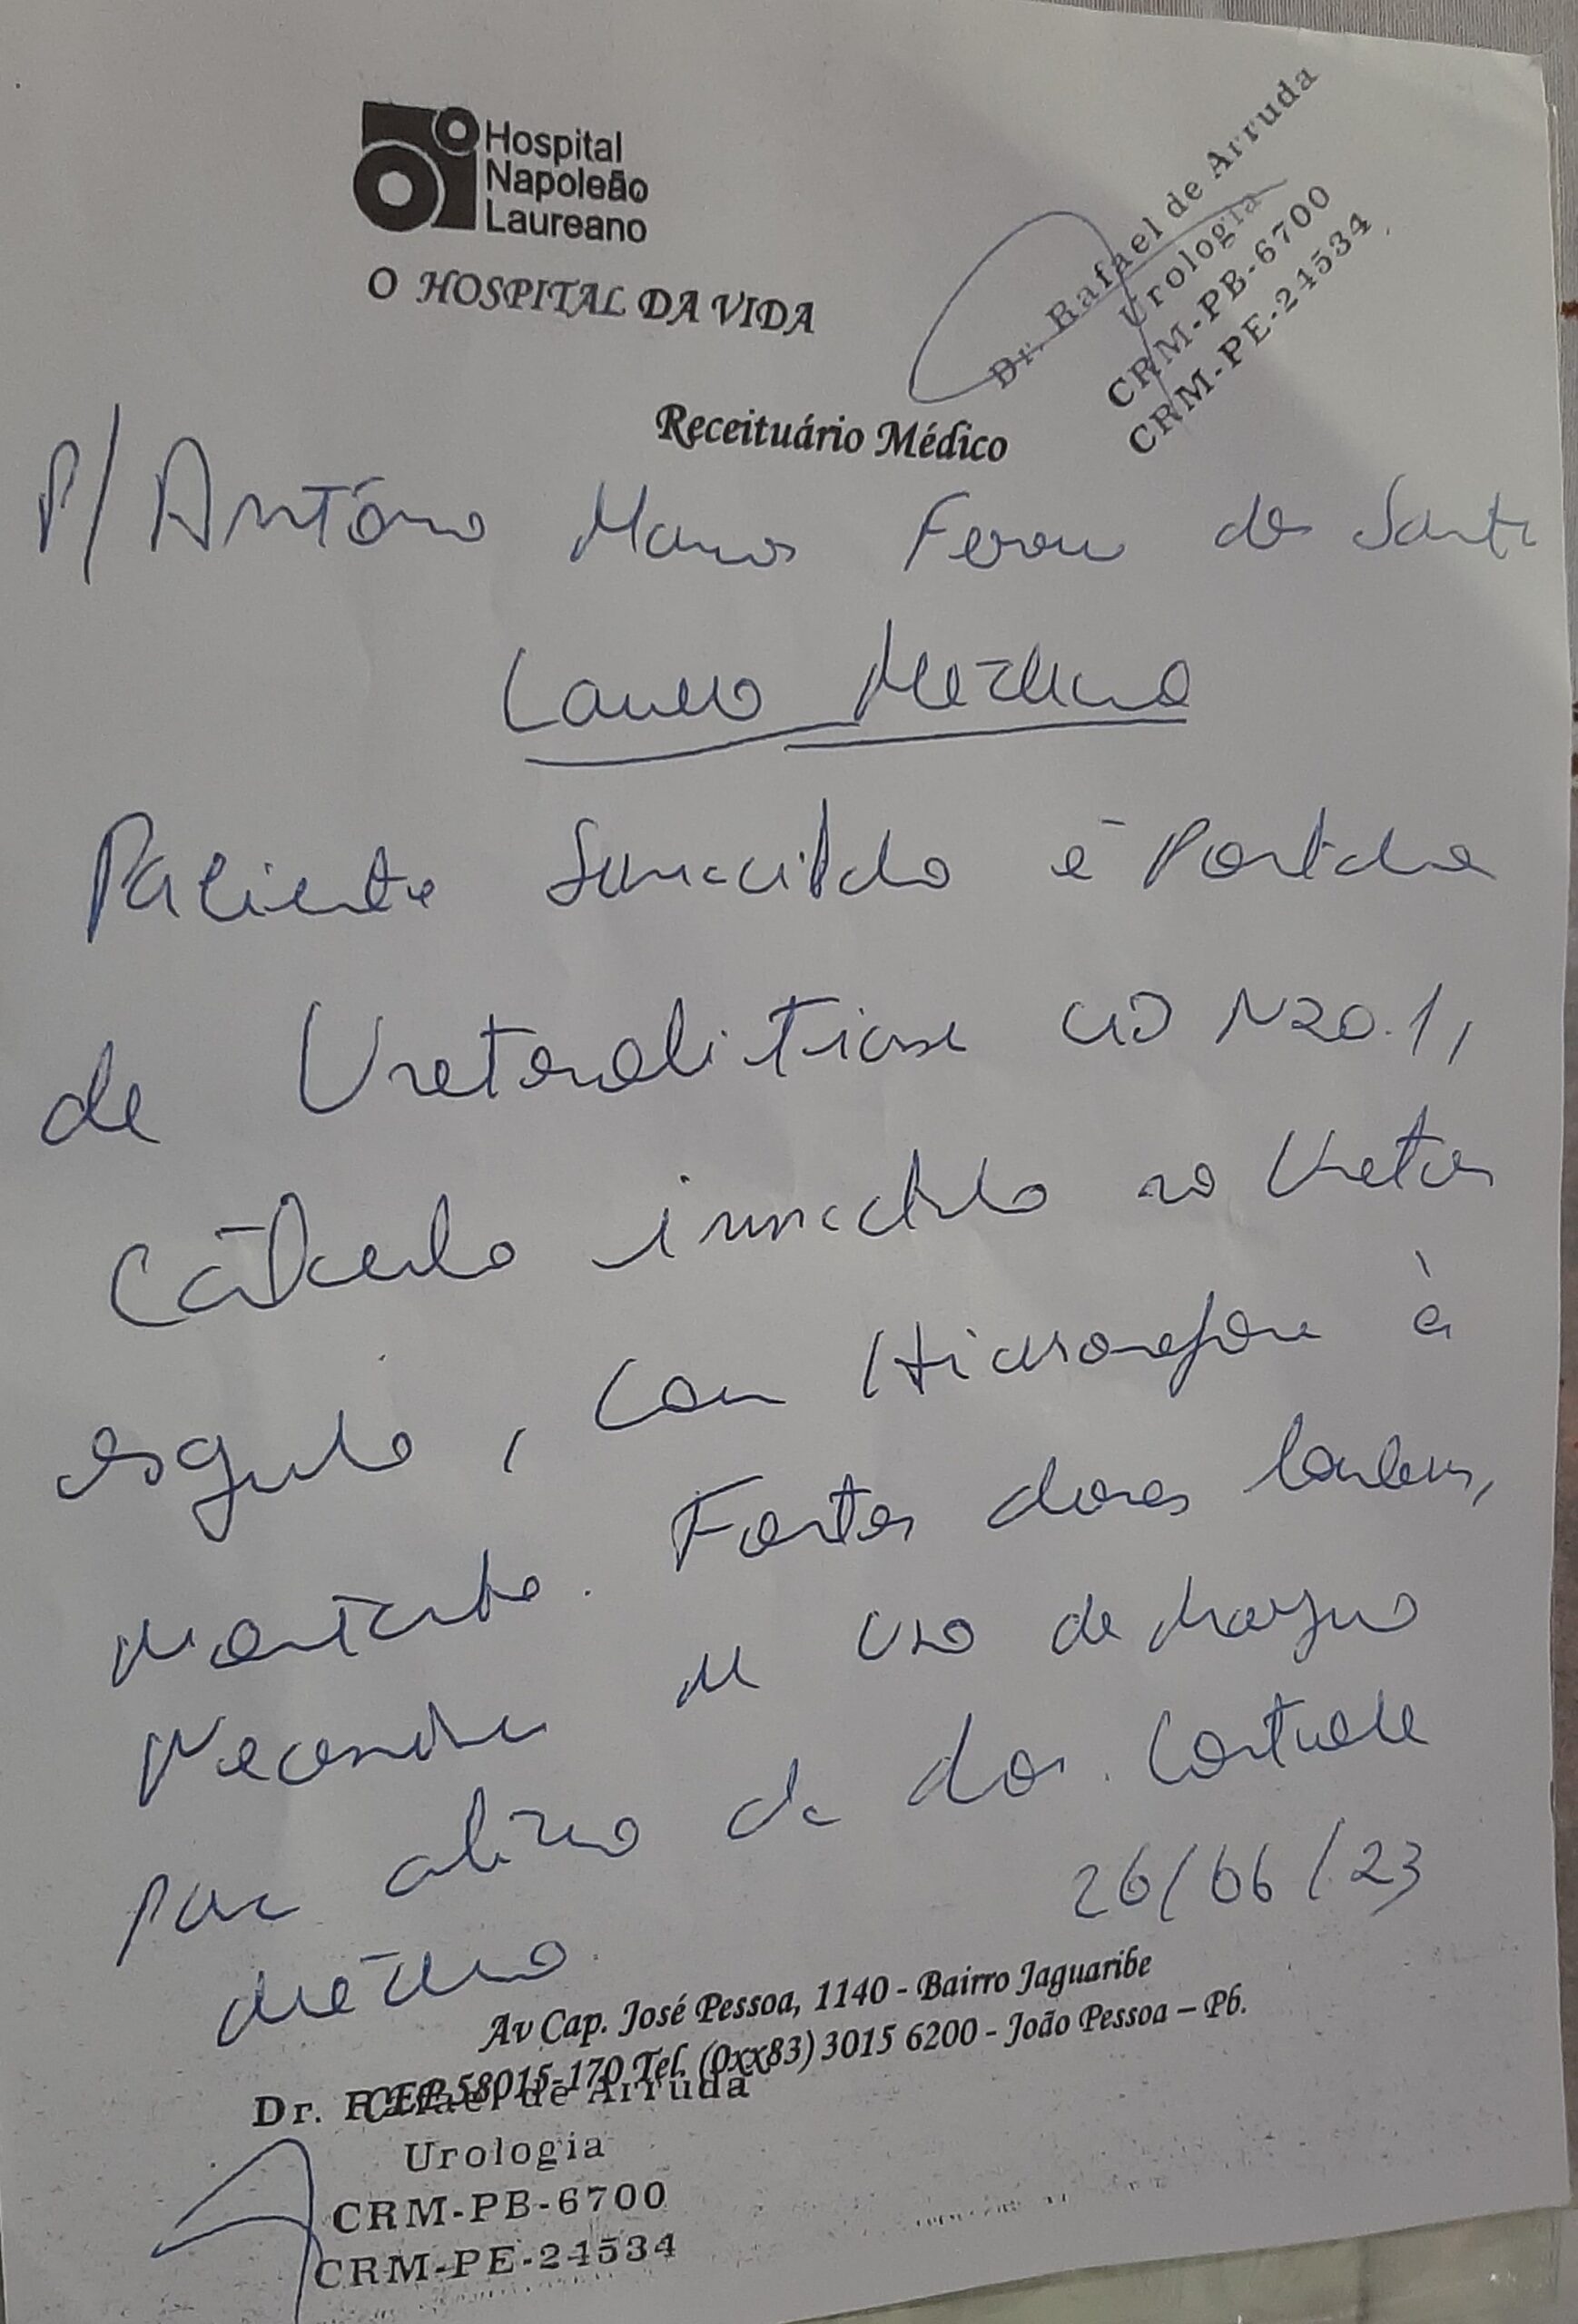 Hospital
Napoleão
Laureano
O HOSPITAL DA VIDA
Dr. Rafael de Arruda
Urologia
CRM-PB-6700
CRM-PE-24534
Receituário Médico
P/ Antônio Marcos dos Santos
Laudo Médico
Paciente é Portador
de Ureterolitíase CID N20.1,
Cálculo no Ureter
esquerdo, com Hidronefrose à
montante. Fortes dores lombares,
Necessita de uso de
para alívio da dor. Controle
médico.
26/06/23
Av Cap. José Pessoa, 1140 - Bairro Jaguaribe
CEP 58015-170 Tel. (0xx83) 3015 6200 - João Pessoa – Pb.
Dr. Rafael de Arruda
Urologia
CRM-PB-6700
CRM-PE-24534